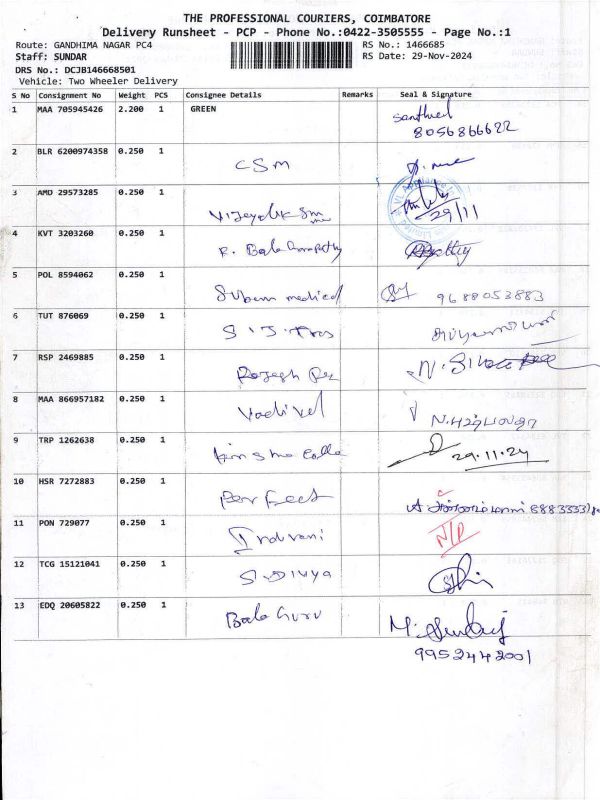 THE PROFESSIONAL COURIERS, COIMBATORE
Delivery Runsheet - PCP - Phone No.:0422-3505555 - Page No.:1
Route: GANDHIMA NAGAR PC4 RS No.: 1466685
Staff: SUNDAR RS Date: 29-Nov-2024
DRS No.: DCJB146668501
Vehicle: Two Wheeler Delivery
S No Consignment No Weight PCS Consignee Details Remarks Seal & Signature
1 MAA 705945426 2.200 1 GREEN
8056866622
2 BLR 6200974358 0.250 1 CSM
3 AMD 29573285 0.250 1
29/11
4 KVT 3203260 0.250 1
5 POL 8594062 0.250 1 Subam medical 9688053883
6 TUT 876069 0.250 1
7 RSP 2469885 0.250 1 Rajesh
8 MAA 866957182 0.250 1 Vadivel
9 TRP 1262638 0.250 1 29.11.24
10 HSR 7272883 0.250 1 Perfect
11 PON 729077 0.250 1 Indirani N/D
12 TCG 15121041 0.250 1 S. Divya
13 EDQ 20605822 0.250 1 Bala Guru
9952442001